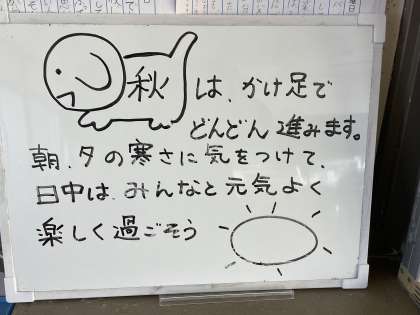 秋は、かけ足で
どんどん進みます。
朝、夕の寒さに気をつけて、
日中は、みんなと元気よく
楽しく過ごそう